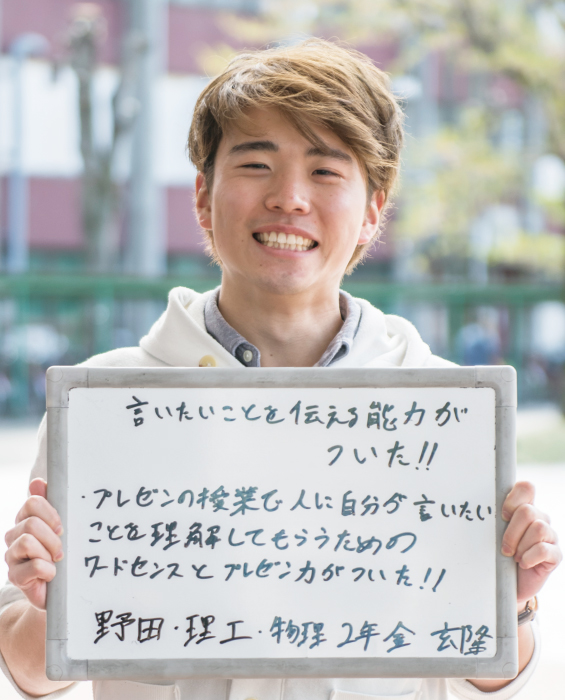 言いたいことを伝える能力が
ついた!!
・プレゼンの授業で人に自分が言いたい
ことを理解してもらうための
ワードセンスとプレゼン力がついた!!
野田・理工・物理 2年 金 玄隆